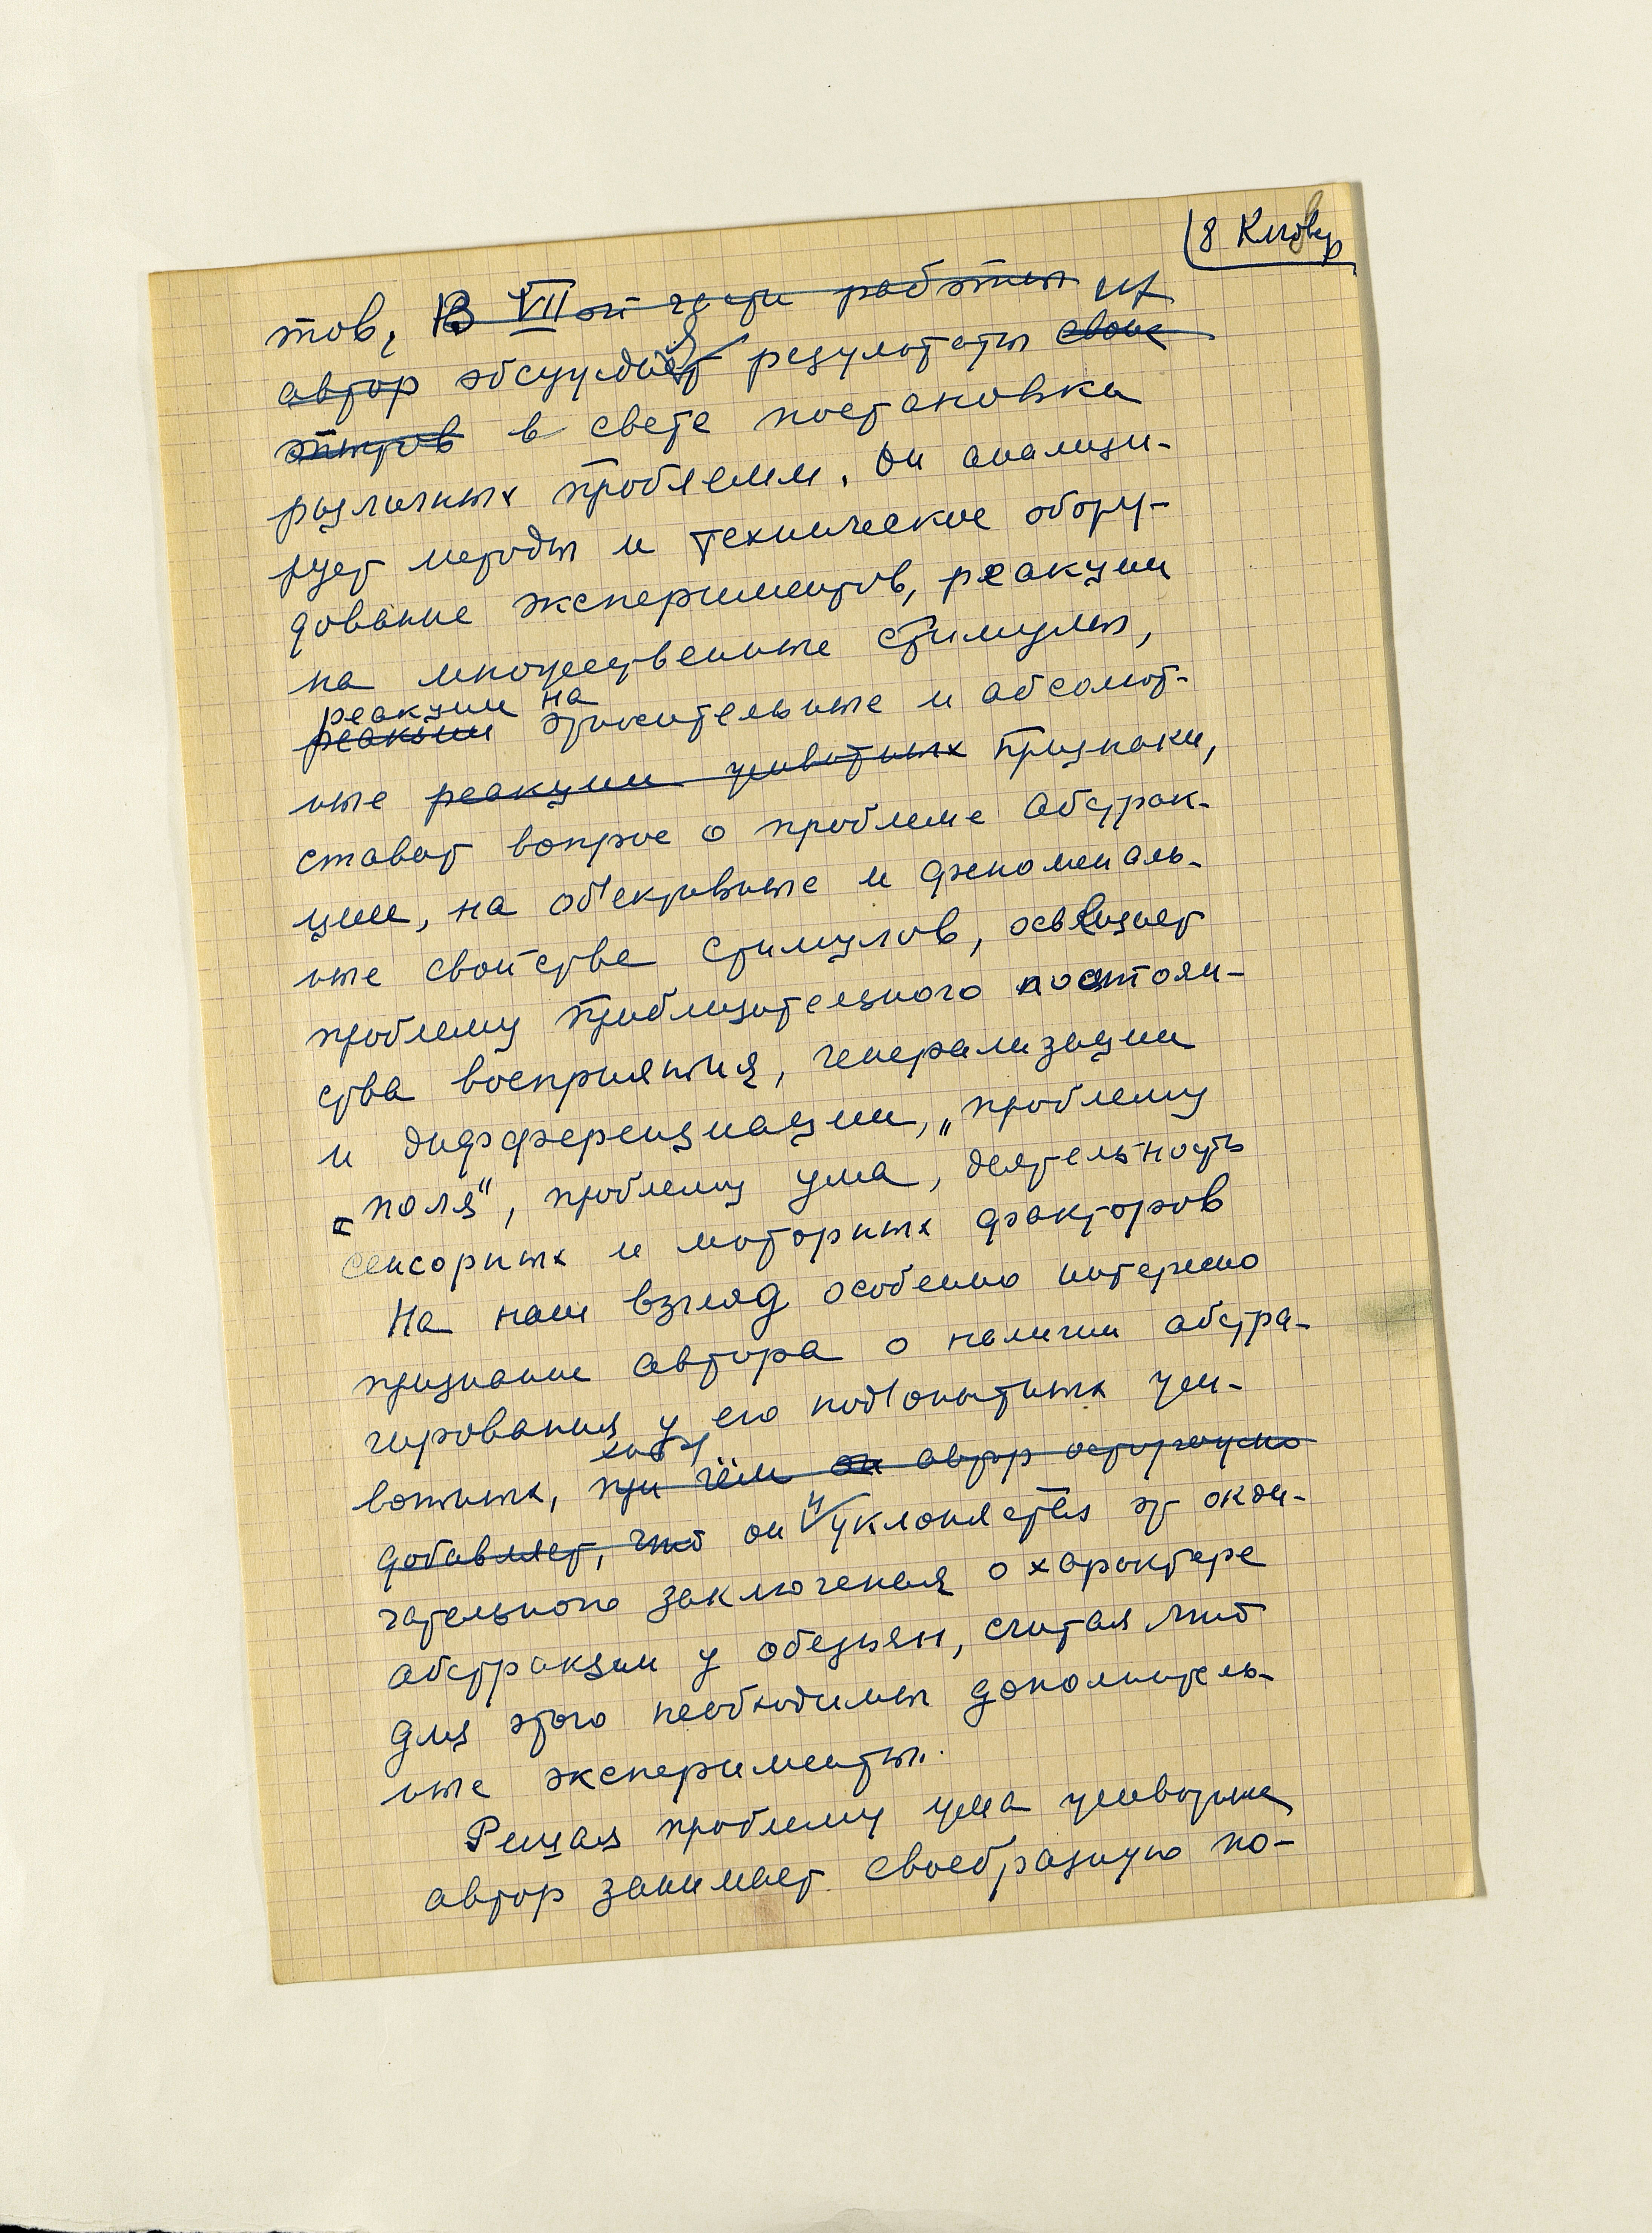 8 Клювер
тов, В VII ой части работы их
автор обсуждая результаты свои
опытов в свете постановки
различных проблемм. Он анализи-
рует методы и техническое обору-
дование экспериментов, реакции
на множественные стимулы,
реакции на
реакции относительные и абсолют-
ные реакции животных признаки,
ставит вопрос о проблеме абстрак-
ции, на об'ективные и феноменаль-
ные свойства стимулов, освещает
проблему приблизительного постоян-
ства восприятия, генерализации
и дифференциации, „проблему
„поля", проблему ума, деятельность
сенсорных и моторных факторов
На наш взгляд особенно интересно
признание автора о наличии абстра-
гирования у его под'опытных жи-
хотя
вотных, при чём он автор осторожно
добавляет, что он и уклоняется от окон-
чательного заключения о характере
абстракции у обезьян, считая что
для этого необходимы дополнитель-
ные эксперименты.
Решая проблему ума животных
автор занимает своеобразную по-